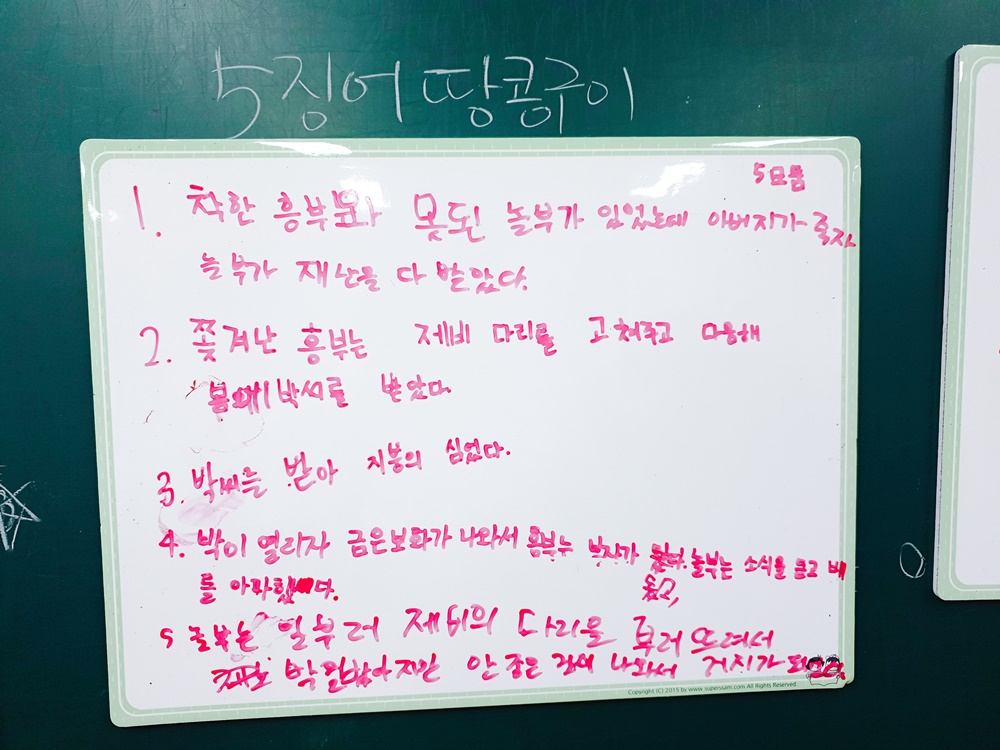 5징어 땅콩구이
5모둠
1. 착한 흥부와 못된 놀부가 있었는데 아버지가 죽자
놀부가 재산을 다 받았다.
2. 쫓겨난 흥부는 제비 다리를 고쳐주고 다음해
봄에 박씨를 받았다
3. 박씨를 받아 지붕의 심었다.
4. 박이 열리자 금은보화가 나와서 흥부는 부자가 놀부는 소식을 듣고 배
됬고,
를 아파했다.
5 놀부는 일부러 제비의 다리을 부러뜨려서
박 안 좋은 것이 나와서 거지가
Copyright (C) 2015 by www.superssam.com All Rights Reserved